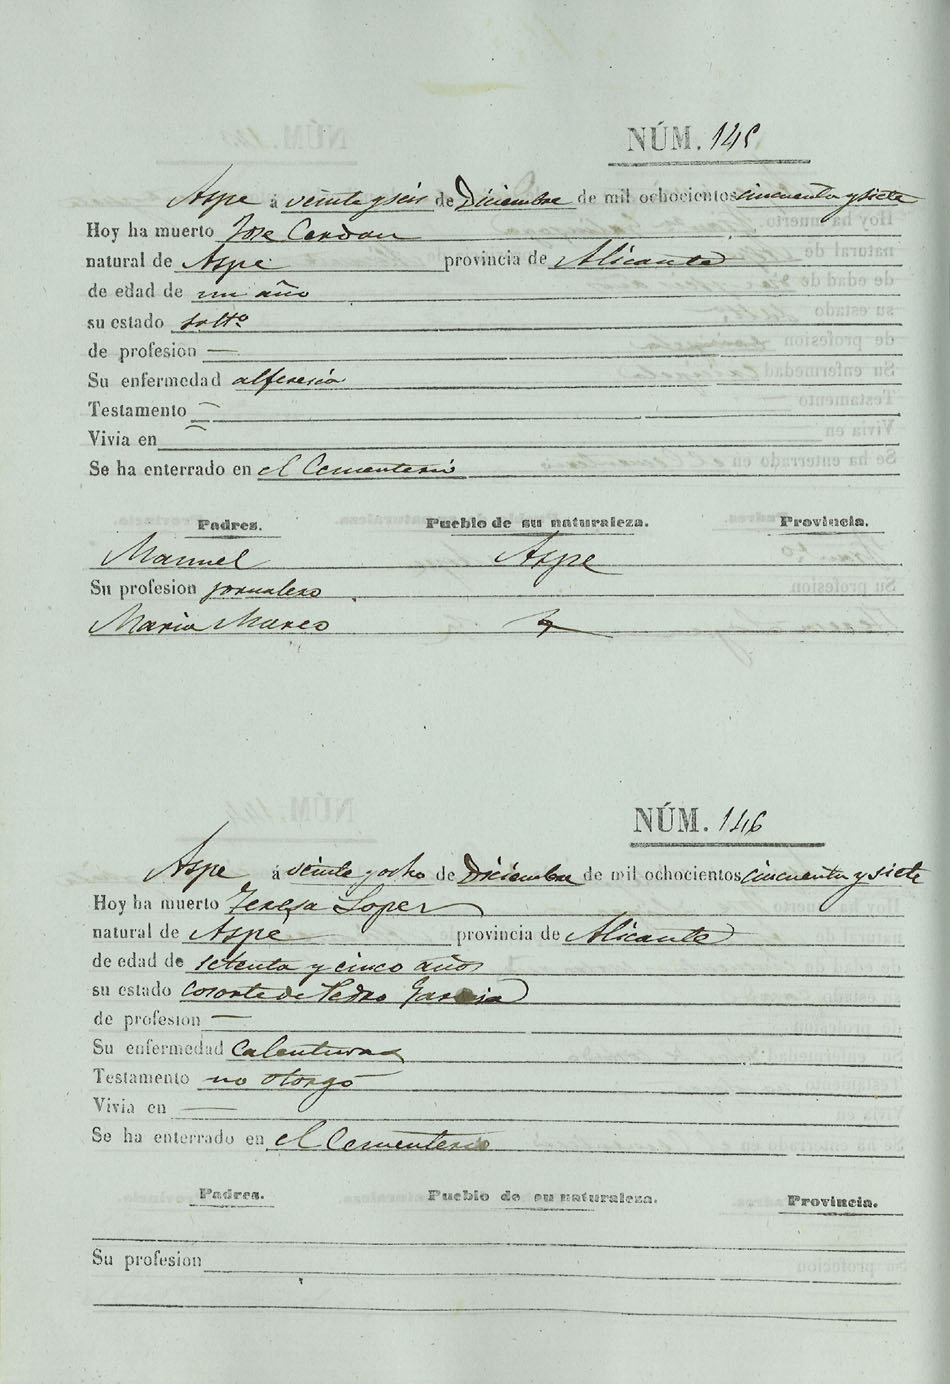 NÚM. 145
Aspe á veinte y seis de Diciembre de mil ochocientos cincuenta y siete
Hoy ha muerto Jose Cerdan
natural de Aspe provincia de Alicante
de edad de un año
su estado soltº
de profesion —
Su enfermedad alferesia
Testamento —
Vivia en —
Se ha enterrado en el Cementerio
Padres. Pueblo de su naturaleza. Provincia.
Manuel Aspe
Su profesion jornalero
Maria Mureo
NÚM. 146
Aspe á veinte y ocho de Diciembre de mil ochocientos cincuenta y siete
Hoy ha muerto Teresa Lopez
natural de Aspe provincia de Alicante
de edad de setenta y cinco años
su estado cosorte de Pedro Garcia
de profesion —
Su enfermedad Calenturas
Testamento no otorgó
Vivia en —
Se ha enterrado en el Cementerio
Padres. Pueblo de su naturaleza. Provincia.
Su profesion